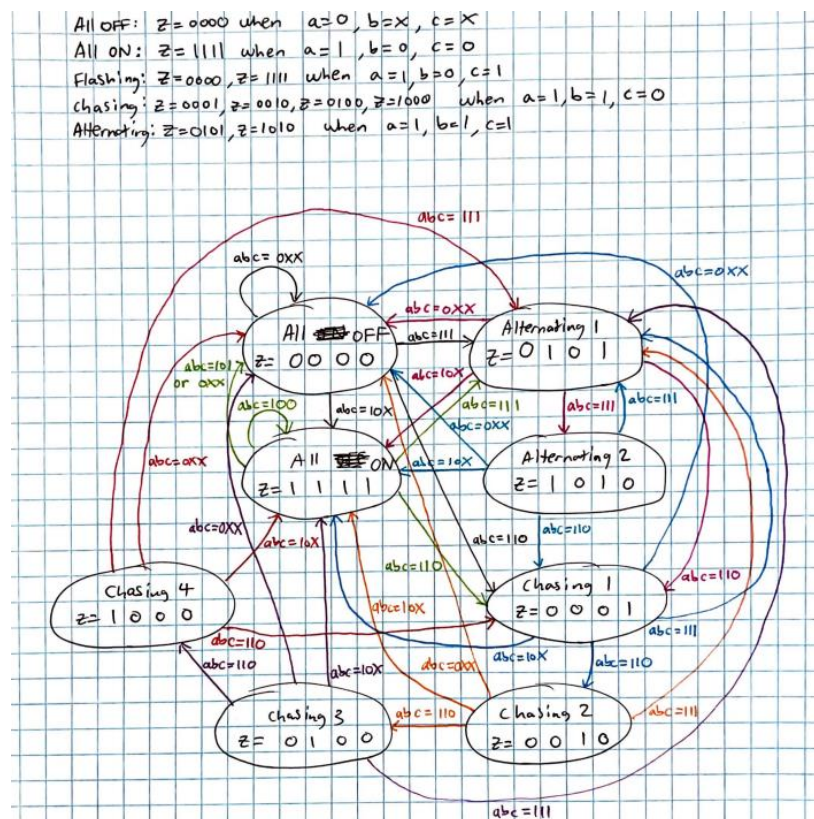 All OFF: Z=0000 when a=0, b=X, c=X
All ON: Z=1111 when a=1, b=0, c=0
Flashing: Z=0000, Z=1111 when a=1, b=0, c=1
Chasing: Z=0001, Z=0010, Z=0100, Z=1000 when a=1, b=1, c=0
Alternating: Z=0101, Z=1010 when a=1, b=1, c=1
abc=111
abc=0XX
abc=0XX
abc=0XX
All OFF
Z=0000
abc=111
Alternating 1
Z=0101
abc=101
or 0XX
abc=10X
abc=100
abc=10X
abc=111
abc=111
abc=111
abc=0XX
All ON
Z=1111
abc=10X
Alternating 2
Z=1010
abc=0XX
abc=0XX
abc=10X
abc=110
abc=110
abc=110
abc=110
Chasing 4
Z=1000
Chasing 1
Z=0001
abc=10X
abc=110
abc=111
abc=110
abc=10X
abc=0XX
abc=10X
abc=110
Chasing 3
Z=0100
abc=110
Chasing 2
Z=0010
abc=111
abc=111